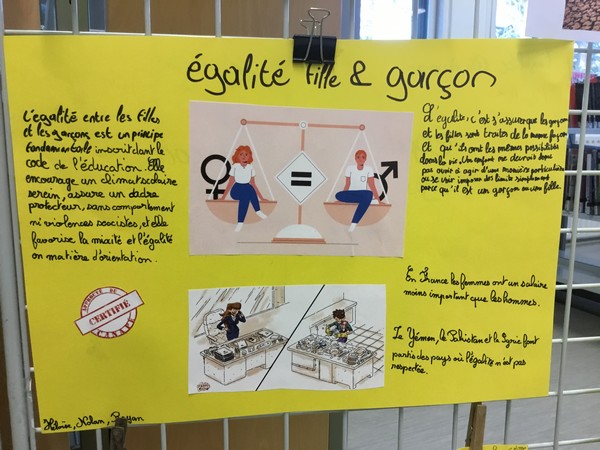 égalité fille & garçon
L'égalité entre les filles
et les garçons est un principe
fondamentale inscrit dans le
code de l'éducation. Elle
encourage un climat scolaire
serein, assure un cadre
protecteur, sans comportement
ni violences sexistes, et elle
favorise la mixité et l'égalité
en matière d'orientation.
L'égalité, c'est s'assurer que les garçons
et les filles sont traités de la même façon
et qu'ils ont les mêmes possibilités
dans la vie. Un enfant ne devrait donc
pas avoir à agir d'une manière particulière
ou se voir imposer des limites simplement
parce qu'il est un garçon ou une fille.
=
En France les femmes ont un salaire
moins important que les hommes.
CERTIFIÉ
Le Yémen, le Pakistan et la Syrie font
partis des pays où l'égalité n'est pas
respectée.
Héloïse, Nolan, Rayan